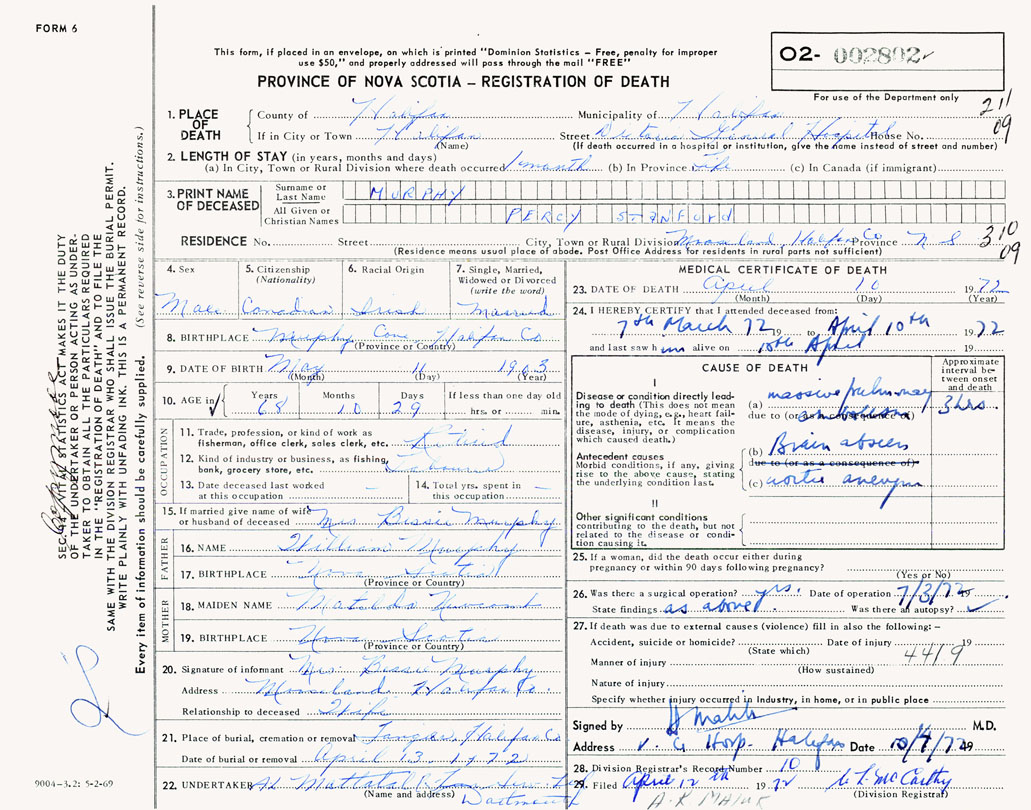 FORM 6
This form, if placed in an envelope, on which is printed "Dominion Statistics – Free, penalty for improper
use $50," and properly addressed will pass through the mail "FREE"
PROVINCE OF NOVA SCOTIA – REGISTRATION OF DEATH
02- 002802
For use of the Department only
211
09
1. PLACE OF DEATH
County of Halifax Municipality of Halifax
If in City or Town Halifax Street Victoria General Hospital House No.
(Name) (If death occurred in a hospital or institution, give the name instead of street and number)
2. LENGTH OF STAY (in years, months and days)
(a) In City, Town or Rural Division where death occurred 1 month (b) In Province Life (c) In Canada (if immigrant)
3. PRINT NAME OF DECEASED
Surname or Last Name MURPHY
All Given or Christian Names PERCY STANFORD
RESIDENCE No. Street City, Town or Rural Division Mooseland Halifax Co Province N S
(Residence means usual place of abode. Post Office Address for residents in rural parts not sufficient)
310
09
4. Sex 5. Citizenship (Nationality) 6. Racial Origin 7. Single, Married, Widowed or Divorced (write the word)
Male Canadian Irish Married
8. BIRTHPLACE Murphy Cove Halifax Co
(Province or Country)
9. DATE OF BIRTH May 11 1903
(Month) (Day) (Year)
10. AGE in Years Months Days If less than one day old
68 10 29 hrs. or min.
OCCUPATION
11. Trade, profession, or kind of work as
fisherman, office clerk, sales clerk, etc. Retired
12. Kind of industry or business, as fishing,
bank, grocery store, etc. Labourer
13. Date deceased last worked
at this occupation –
14. Total yrs. spent in
this occupation –
15. If married give name of wife
or husband of deceased Mrs. Bessie Murphy
FATHER
16. NAME William Murphy
17. BIRTHPLACE Nova Scotia
(Province or Country)
MOTHER
18. MAIDEN NAME Matilda Newcomb
19. BIRTHPLACE Nova Scotia
(Province or Country)
20. Signature of informant Mrs. Bessie Murphy
Address Mooseland, Halifax Co.
Relationship to deceased Wife
21. Place of burial, cremation or removal Tangier, Halifax Co
Date of burial or removal April 13 1972
22. UNDERTAKER
(Name and address) Dartmouth
MEDICAL CERTIFICATE OF DEATH
23. DATE OF DEATH April 10 1972
(Month) (Day) (Year)
24. I HEREBY CERTIFY that I attended deceased from:
7th March 72 19 to April 10th 1972
and last saw him alive on 10th April 19
CAUSE OF DEATH
Approximate interval between onset and death
I
Disease or condition directly leading to death (This does not
mean the mode of dying, e.g., heart failure, asthenia, etc. It means the
disease, injury, or complication
which caused death.)
(a) massive pulmonary
due to (or as a consequence of) embolism 3 hrs
Antecedent causes
Morbid conditions, if any, giving
rise to the above cause, stating
the underlying condition last.
(b) Brain abscess
due to (or as a consequence of)
(c) aortic aneurysm
II
Other significant conditions
contributing to the death, but not
related to the disease or condition causing it.
25. If a woman, did the death occur either during
pregnancy or within 90 days following pregnancy?
(Yes or No)
26. Was there a surgical operation? yes. Date of operation 7/3/72 19
State findings as above. Was there an autopsy?
27. If death was due to external causes (violence) fill in also the following: –
Accident, suicide or homicide? Date of injury 19
(State which)
4419
Manner of injury
(How sustained)
Nature of injury
Specify whether injury occurred in Industry, in home, or in public place
Signed by M.D.
Address V. G Hosp. Halifax Date 10/4/72 19
28. Division Registrar's Record Number 10
29. Filed April 12th 1972
(Division Registrar)
SEC. 14 VITAL STATISTICS ACT MAKES IT THE DUTY
OF THE UNDERTAKER OR PERSON ACTING AS UNDERTAKER TO OBTAIN ALL THE PARTICULARS REQUIRED
IN THE "REGISTRATION OF DEATH" AND FILE THE
SAME WITH THE DIVISION REGISTRAR WHO SHALL ISSUE THE BURIAL PERMIT.
WRITE PLAINLY WITH UNFADING INK. THIS IS A PERMANENT RECORD.
Every item of information should be carefully supplied. (See reverse side for instructions.)
9004-3.2: 5-2-69